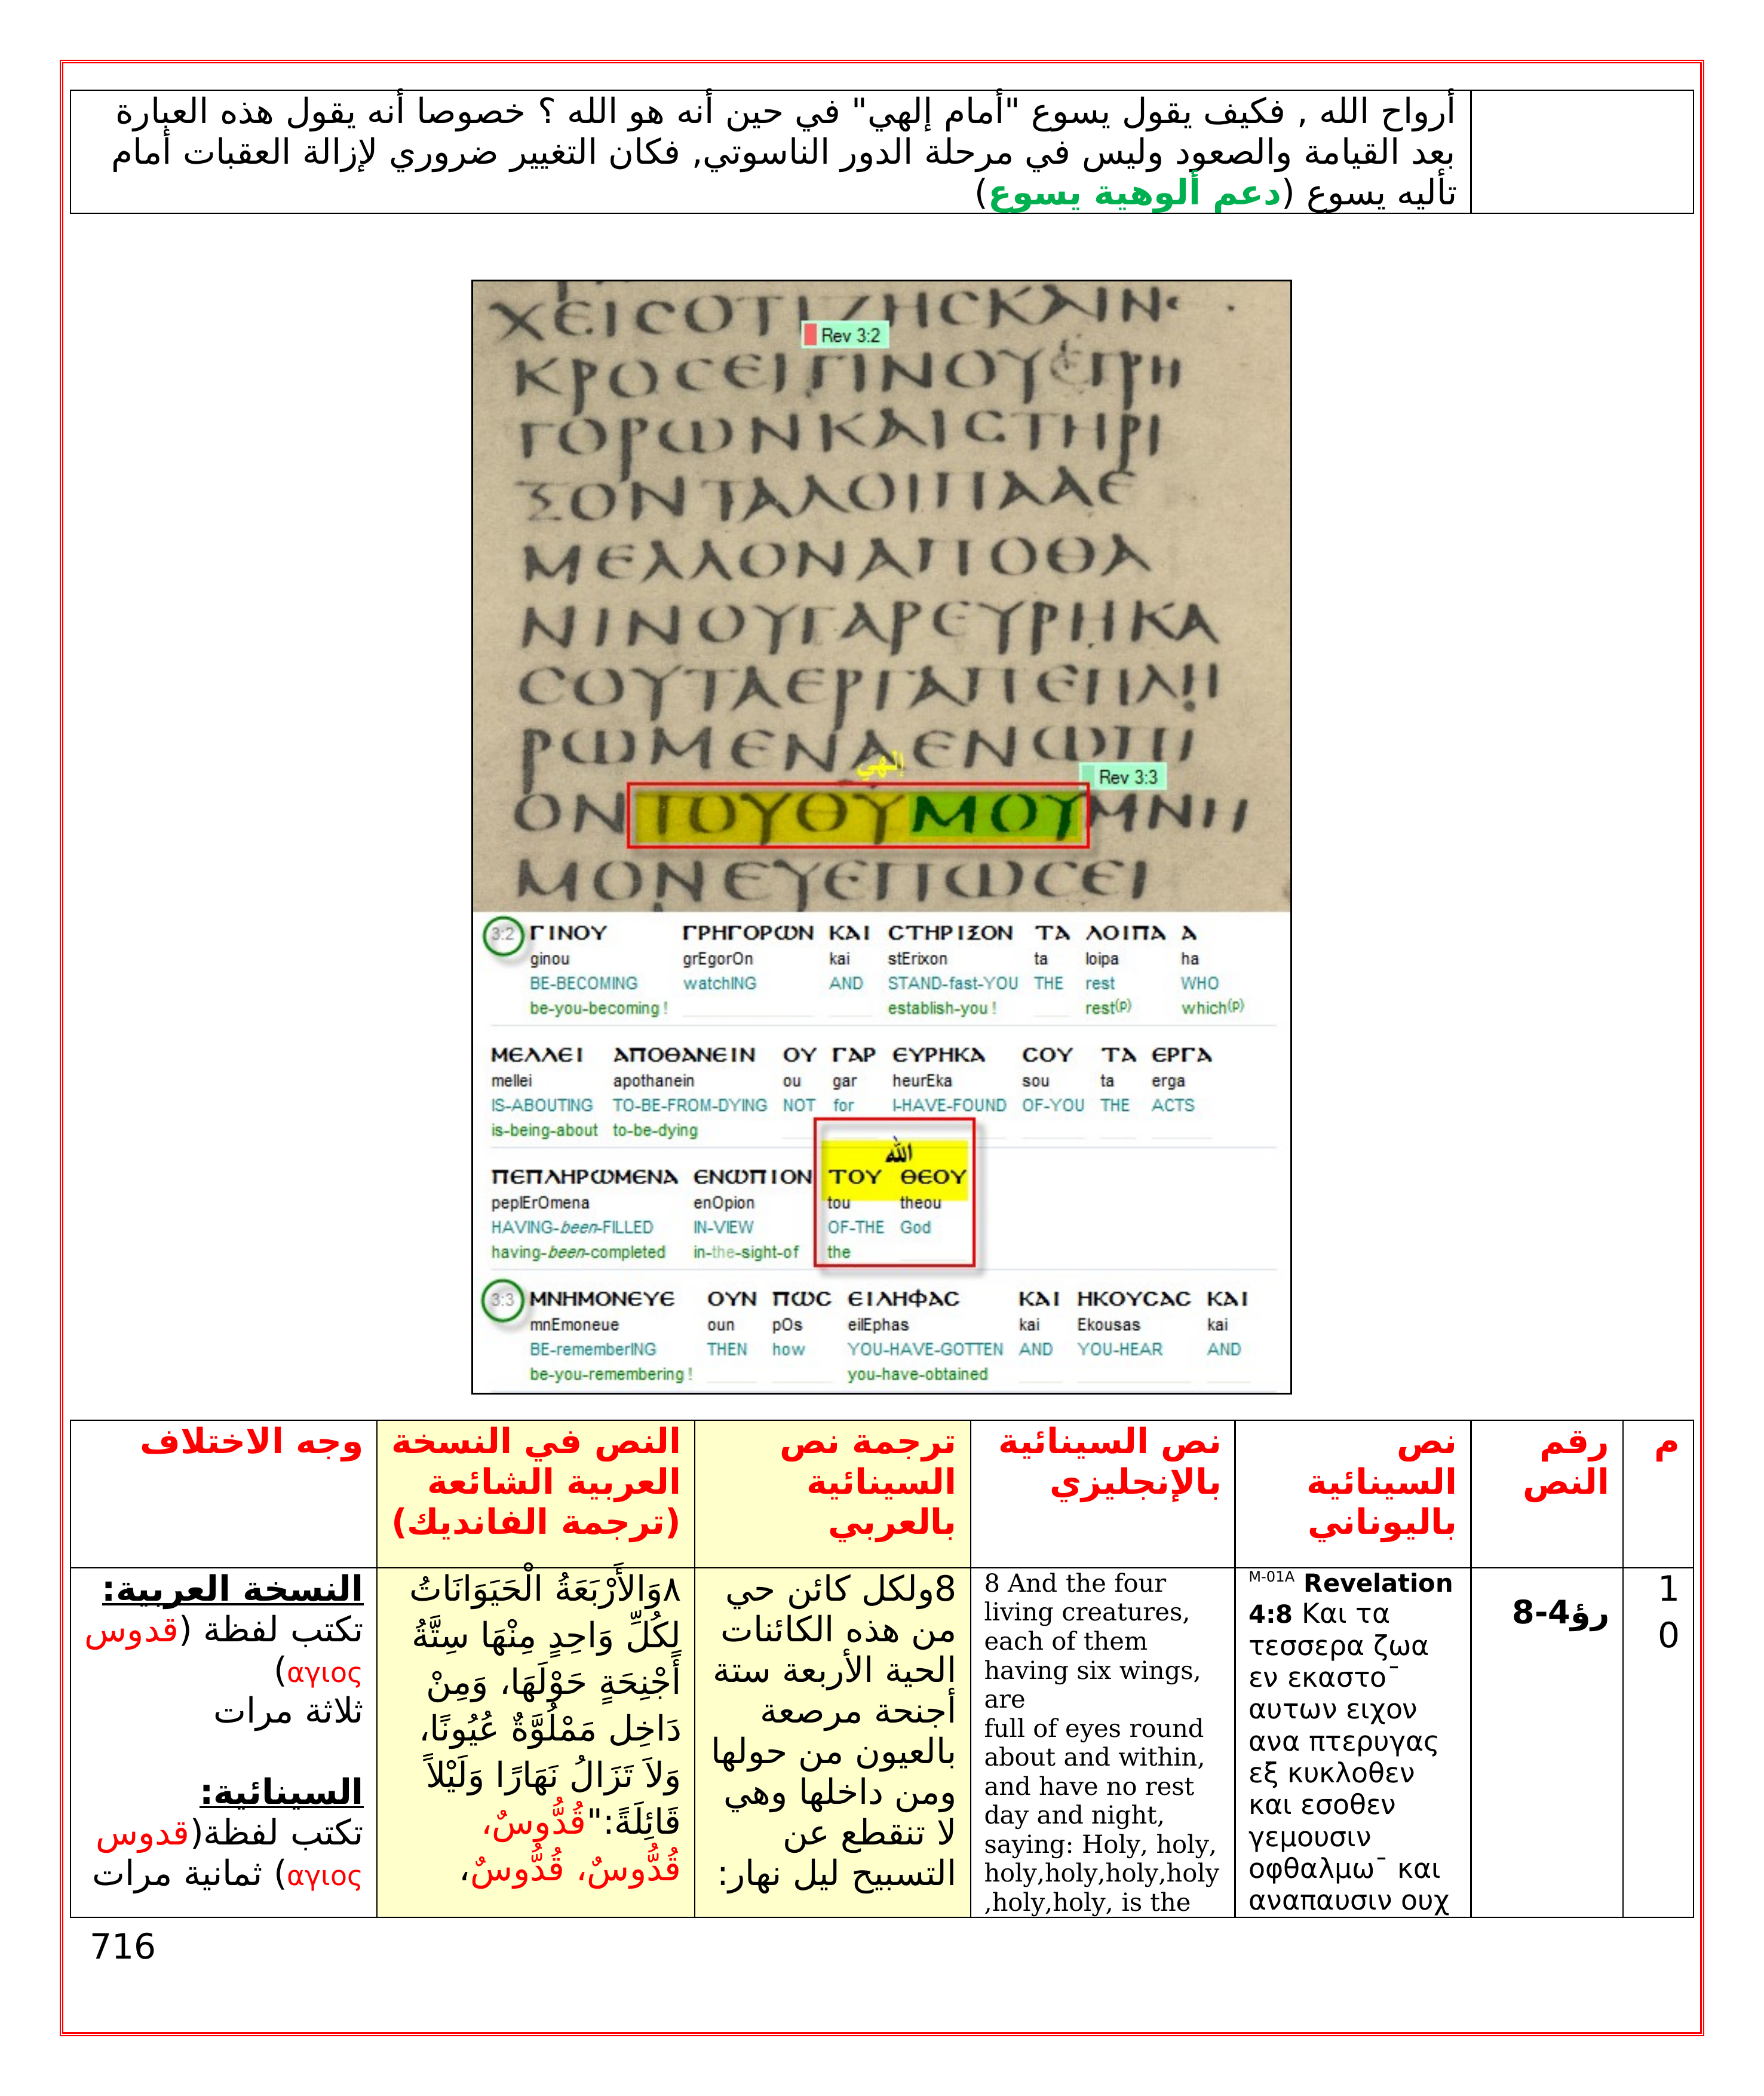 أرواح الله , فكيف يقول يسوع "أمام إلهي" في حين أنه هو الله ؟ خصوصا أنه يقول هذه العبارة
بعد القيامة والصعود وليس في مرحلة الدور الناسوتي, فكان التغيير ضروري لإزالة العقبات أمام
تأليه يسوع (دعم ألوهية يسوع)
ΧΕΙCΟΤΙΖΗCΚΑΙΝ
Rev 3:2
ΚΡΟCΕΙΓΙΝΟΥΕΓΡΗ
ΓΟΡΩΝΚΑΙCΤΗΡΙ
ΞΟΝΤΑΛΟΙΠΑΑΕ
ΜΕΛΛΟΝΑΠΟΘΑ
ΝΙΝΟΥΓΑΡΕΥΡΗΚΑ
CΟΥΤΑΕΡΓΑΠΕΠΛΗ
ΡΩΜΕΝΑΕΝΩΠΙ
إلهي
Rev 3:3
ΟΝΤΟΥΘΥΜΟΥΜΝΗ
ΜΟΝΕΥΕΠΩCΕΙ
3:2 ΓΙΝΟΥ ΓΡΗΓΟΡΩΝ ΚΑΙ CΤΗΡΙΞΟΝ ΤΑ ΛΟΙΠΑ Α
ginou grEgorOn kai stErixon ta loipa ha
BE-BECOMING watchING AND STAND-fast-YOU THE rest WHO
be-you-becoming ! establish-you ! rest(p) which(p)
ΜΕΛΛΕΙ ΑΠΟΘΑΝΕΙΝ ΟΥ ΓΑΡ ΕΥΡΗΚΑ CΟΥ ΤΑ ΕΡΓΑ
mellei apothanein ou gar heurEka sou ta erga
IS-ABOUTING TO-BE-FROM-DYING NOT for I-HAVE-FOUND OF-YOU THE ACTS
is-being-about to-be-dying
الله
ΠΕΠΛΗΡΩΜΕΝΑ ΕΝΩΠΙΟΝ ΤΟΥ ΘΕΟΥ
peplErOmena enOpion tou theou
HAVING-been-FILLED IN-VIEW OF-THE God
having-been-completed in-the-sight-of the
3:3 ΜΝΗΜΟΝΕΥΕ ΟΥΝ ΠΩC ΕΙΛΗΦΑC ΚΑΙ ΗΚΟΥCΑC ΚΑΙ
mnEmoneue oun pOs eilEphas kai Ekousas kai
BE-rememberING THEN how YOU-HAVE-GOTTEN AND YOU-HEAR AND
be-you-remembering ! you-have-obtained
م
رقم
النص
نص
السينائية
باليوناني
نص السينائية
بالإنجليزي
ترجمة نص
السينائية
بالعربي
النص في النسخة
العربية الشائعة
(ترجمة الفانديك)
وجه الاختلاف
1
0
رؤ4-8
M-01A Revelation
4:8 Και τα
τεσσερα ζωα
εν εκαστο¯
αυτων ειχον
ανα πτερυγας
εξ κυκλοθεν
και εσοθεν
γεμουσιν
οφθαλμω¯ και
αναπαυσιν ουχ
8 And the four
living creatures,
each of them
having six wings,
are
full of eyes round
about and within,
and have no rest
day and night,
saying: Holy, holy,
holy,holy,holy,holy
,holy,holy, is the
8ولكل كائن حي
من هذه الكائنات
الحية الأربعة ستة
أجنحة مرصعة
بالعيون من حولها
ومن داخلها وهي
لا تنقطع عن
التسبيح ليل نهار:
٨وَالأَرْبَعَةُ الْحَيَوَانَاتُ
لِكُلِّ وَاحِدٍ مِنْهَا سِتَّةُ
أَجْنِحَةٍ حَوْلَهَا، وَمِنْ
دَاخِل مَمْلُوَّةٌ عُيُونًا،
وَلاَ تَزَالُ نَهَارًا وَلَيْلاً
قَائِلَةً:"قُدُّوسٌ،
قُدُّوسٌ، قُدُّوسٌ،
النسخة العربية:
تكتب لفظة (قدوس
αγιος)
ثلاثة مرات
السينائية:
تكتب لفظة(قدوس
αγιος) ثمانية مرات
716